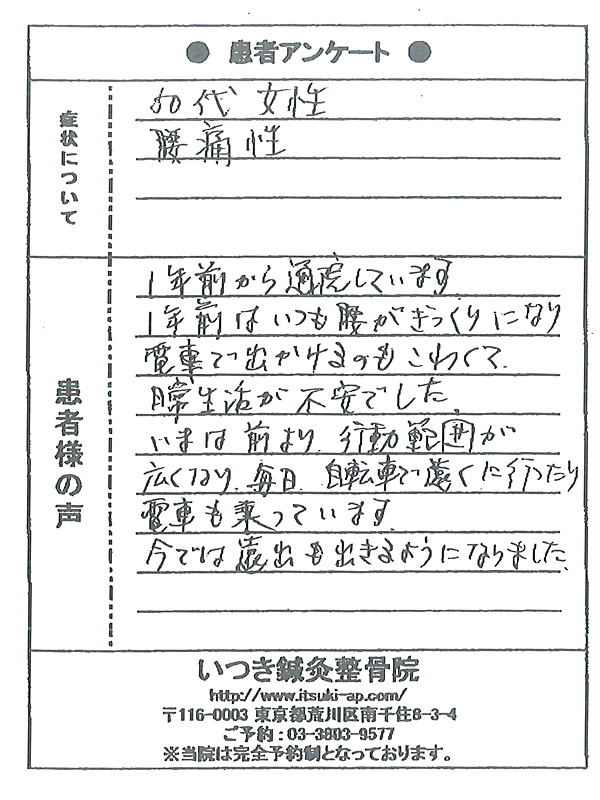 ● 患者アンケート ●
症状について
50代 女性
腰痛性
患者様の声
1年前から通院しています
1年前はいつも腰がぎっくりになり
電車で出かけるのもこわくて、
日常生活が不安でした。
いまは前より行動範囲が
広くなり、毎日、自転車で遠くに行ったり
電車も乗っています。
今では遠出も出きるようになりました。
いつき鍼灸整骨院
http://www.itsuki-ap.com/
〒116-0003 東京都荒川区南千住8-3-4
ご予約:03-3803-9577
※当院は完全予約制となっております。